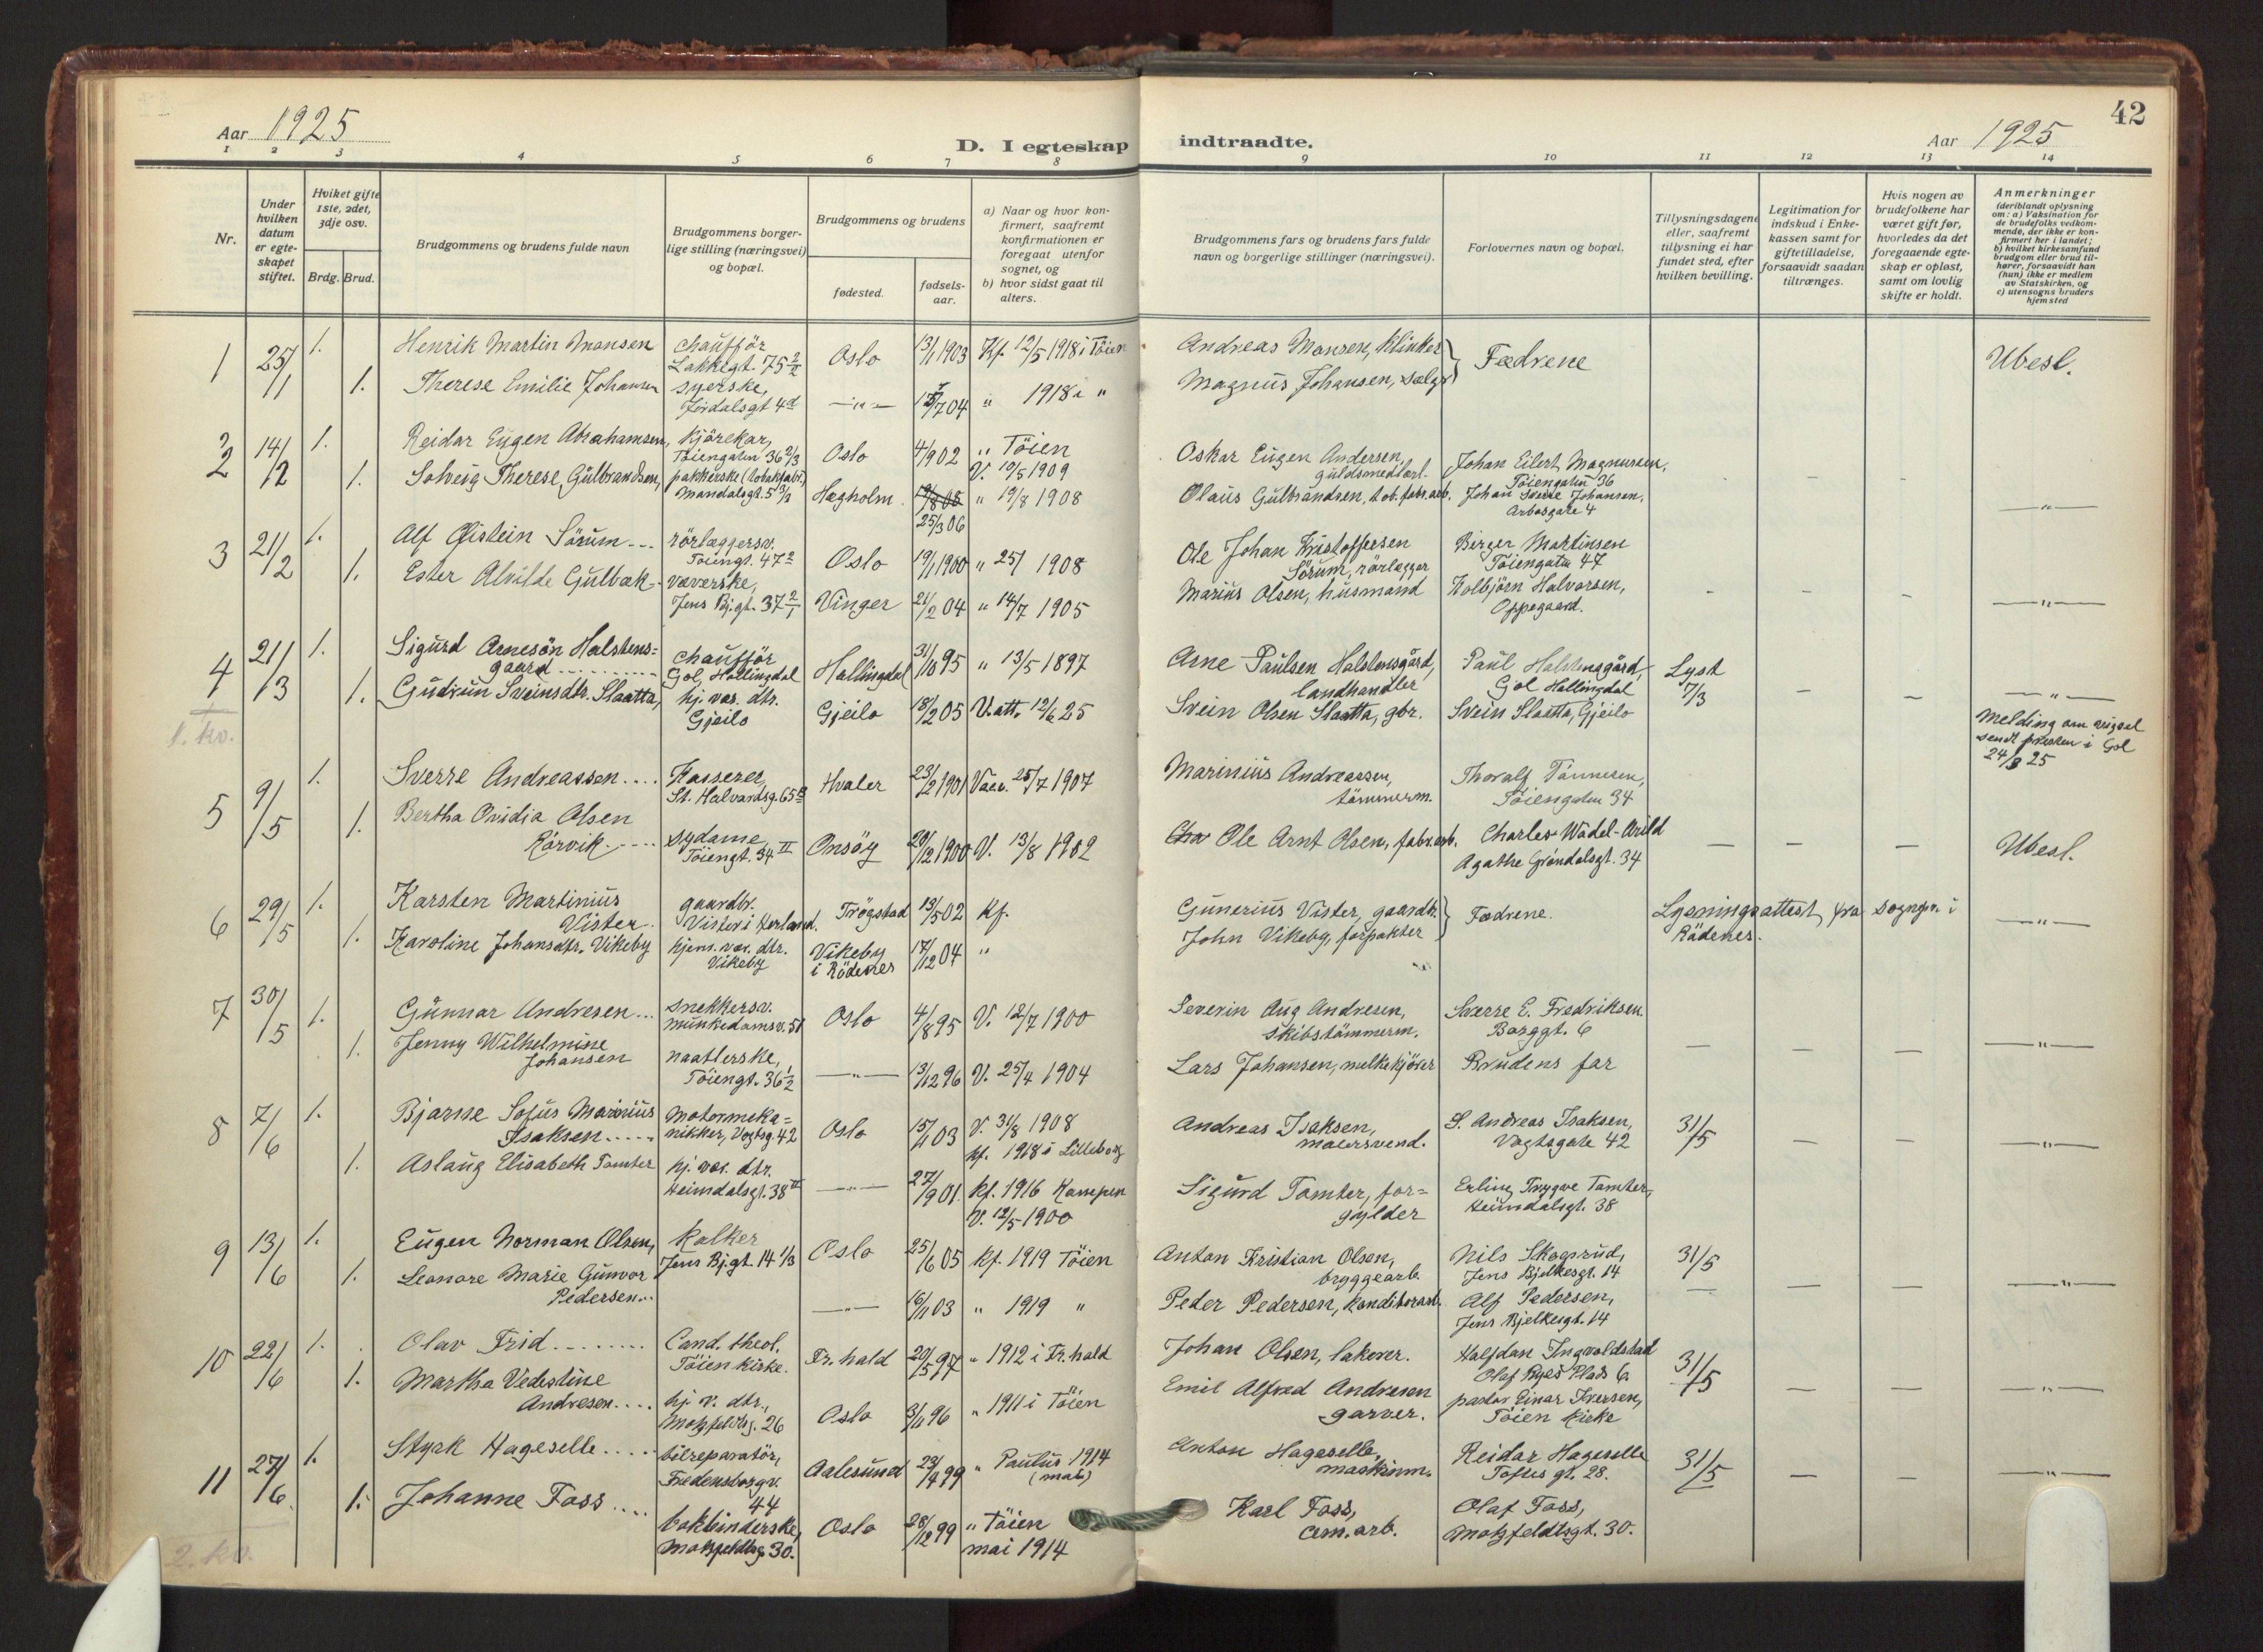 42
Aar 1925
D. I egteskap indtraadte.
Aar 1925
1 2 3 4 5 6 7 8 9 10 11 12 13 14
Nr.
Under hvilken datum er egte- skapet stiftet.
Hviket gifte 1ste, 2det, 3dje osv.
Brdg. Brud.
Brudgommens og brudens fulde navn
Brudgommens borger- lige stilling (næringsvei) og bopæl.
Brudgommens og brudens
fødested.
fødsels- aar.
a) Naar og hvor kon- firmert, saafremt konfirmationen er foregaat utenfor sognet, og
b) hvor sidst gaat til alters.
Brudgommens fars og brudens fars fulde navn og borgerlige stillinger (næringsvei).
Forlovernes navn og bopæl.
Tillysningsdagene eller, saafremt tillysning ei har fundet sted, efter hvilken bevilling.
Legitimation for indskud i Enke- kassen samt for giftetilladelse, forsaavidt saadan tiltrænges.
Hvis nogen av brudefolkene har været gift før, hvorledes da det foregaaende egte- skap er opløst, samt om lovlig skifte er holdt.
Anmerkninger (deriblandt oplysning om: a) Vaksination for de brudefolks vedkom- mende, der ikke er kon- firmert her i landet; b) hvilket kirkesamfund brudgom eller brud til- hører, forsaavidt han (hun) ikke er medlem av Statskirken, og c) utensogns bruders hjemsted
1 25/1 1. Henrik Martin Monsen chaufför Lakkegt. 75 2/2 Oslo 13/1 1903 Kf. 12/5 1918 i Töien Andreas Monsen, klinker } Fædrene Ubesl.
1. Therese Emilie Johansen syerske, Jordalsgt 4d —"— /7 04 " 1918 i " Magnus Johansen, sælger
2 14/2 1. Reidar Eugen Abrahamsen, kjörekar, Töiengaten 36 2/3 Oslo 4/9 02 " Töien V. 19/5 1909 Oskar Eugen Andersen, guldsmedarb. Johan Eilert Magnussen, Töiengaten 36
1. Solveig Therese Gulbrandsen, pakkerske (tobakfabr.) Mandalsgt. 5 Hægholm 25/3 06 " 19/8 1908 Olaus Gulbrandsen, tob.fabr.arb. Johan Sverre Johansen, Arbosgate 4 —"—
3 21/2 1. Alf Øistein Sörum rörlæggersv. Töiengt. 47 2 Oslo 19/1 1900 " 25/ 1908 Ole Johan Kristoffersen Sörum, rörlægger Birger Martinsen Töiengata 47
1. Ester Alvilde Gulbæk væverske, Jens Bj.gt. 37 2/1 Vinger 21/2 04 " 14/7 1905 Marius Olsen, husmand Kolbjörn Halvorsen, Oppegaard. —"—
4 21/3 1. Sigurd Arnesön Halstens= gaard chaufför Gol, Hallingdal Hallingdal 31/10 95 " 13/5 1897 Arne Paulsen Halstensgård, landhandler Paul Halstensgård, Gol Hallingdal Lyst 7/3 —"—
1. Gudrun Sveinsdtr. Slaatta, hj. vær. dtr. Gjeilo Gjeilo 18/2 05 V.att. 12/6 25 Svein Olsen Slaatta, gbr. Svein Slaatta, Gjeilo
1. kv.
Melding om vigsel sendt presten i Gol 24/3 25
5 9/5 1. Sverre Andreassen Kasserer, St. Halvardsg. 65 Hvaler 23/2 1901 Vacc. 25/7 1907 Marinius Andreassen, tömmerm. Thoralf Tönnesen, Töiengaten 34
1. Bertha Ovidia Olsen Rørvik sydame, Töiengt. 34 II Onsöy 20/12 1900 V. 13/8 1902 Ole Arnt Olsen, fabr.arb. Charles Wadel-Arild Agathe Gröndalsgt. 34 Ubesl.
6 29/5 1. Karsten Martinius Vister gaardbr. Vister i Kerland. Trøgstad 13/5 02 kf. Gunerius Vister, gaardbr. } Fædrene. Lysningsattest fra sogngpr. i Rödenes. —"—
1. Karoline Johansdtr. Vikeby hjem. vær. dtr. Vikeby Vikeby i Rödenes 17/12 04 " John Vikeby, forpakter
7 30/5 1. Gunnar Andresen snekkersv. Munkedamsv. 51 Oslo 4/8 95 V. 12/7 1900 Severin Aug Andresen, skibstömmerm. Sverre E. Fredriksen Borggt. 6
1. Jenny Wilhelmine Johansen naatlerske, Töiengt. 36 1/2 —"— 13/12 96 V. 25/4 1904 Lars Johansen, melkekjörer Brudens far —"—
8 7/6 1. Bjarne Sofus Marinius Isaksen motormeka= nikker, Vogtsg. 42 Oslo 15/11 03 V. 31/8 1908 kf. 1918 i Lilleborg Andreas Isaksen, malersvend. S. Andreas Isaksen, Vogtsgate 42 31/5 —"—
1. Aslaug Elisabeth Tomter hj. vær. dtr. Heimdalsgt. 38 II —"— 27/9 01. kf. 1916 Kampen V. 12/5 1900 Sigurd Tomter, for= gylder Erling Trygve Tomter, Heimdalsgt. 38
9 13/6 1. Eugen Norman Olsen, kalker Jens Bj.gt. 14 1/3 Oslo 25/6 05 kf. 1919 Töien Anton Kristian Olsen, bryggearb. Nils Skogsrud, Jens Bjelkesgt. 14 31/5
1. Leonore Marie Gunvor Pedersen —"— 16/11 03 " 1919 " Peder Pedersen, konditorarb. Alf Pedersen, Jens Bjelkesgt. 14 —"—
10 22/6 1. Olav Frid Cand. theol. Töien kirke. Fr.hald 20/5 97 " 1912 i Fr.hald Johan Olsen, lakerer. Halfdan Ingvoldstad Olaf Ryes Plads 6 31/5
1. Martha Vedestine Andresen hj. v. dtr., Motzfeldtsg. 26 Oslo 3/11 96 " 1911 i Töien Emil Alfred Andresen garver. pastor Einar Iversen, Töien kirke —"—
11 27/6 1. Styrk Hageselle bilreparatör, Fredensborgv. 44 Aalesund 23/9 99 " Paulus 1914 (mai) Anton Hageselle, maskinm. Reidar Hageselle Toftes gt. 28. 31/5 —"—
1. Johanne Foss bokbinderske, Motzfeldtsg. 30. Oslo 28/12 99 " Töien mai 1914 Karl Foss, am. arb. Olaf Foss, Motzfeldtsgt. 30.
2. kv.